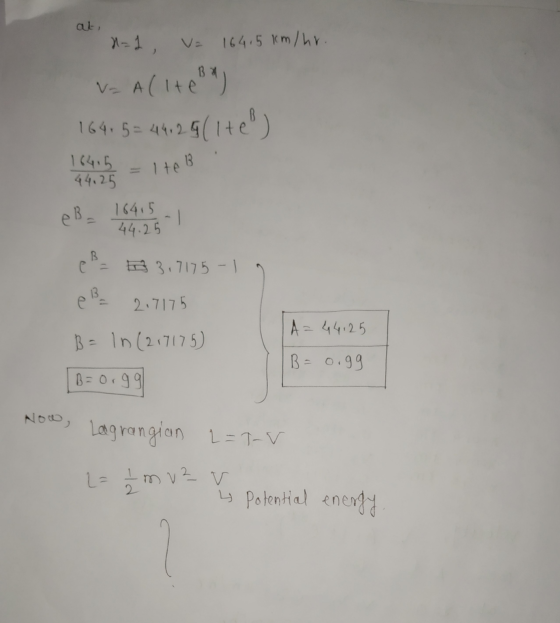 at,
x=1, V= 164.5 km/hr.
V= A(1+e^{Bx})
164.5=44.25(1+e^{B})
164.5/44.25 = 1+e^{B}
e^{B}= 164.5/44.25 -1
e^{B}= 3.7175-1
e^{B}= 2.7175
B= ln(2.7175)
B=0.99
A= 44.25
B= 0.99
Now, Lagrangian L=T-V
L= 1/2 m v² - V
↳ Potential energy